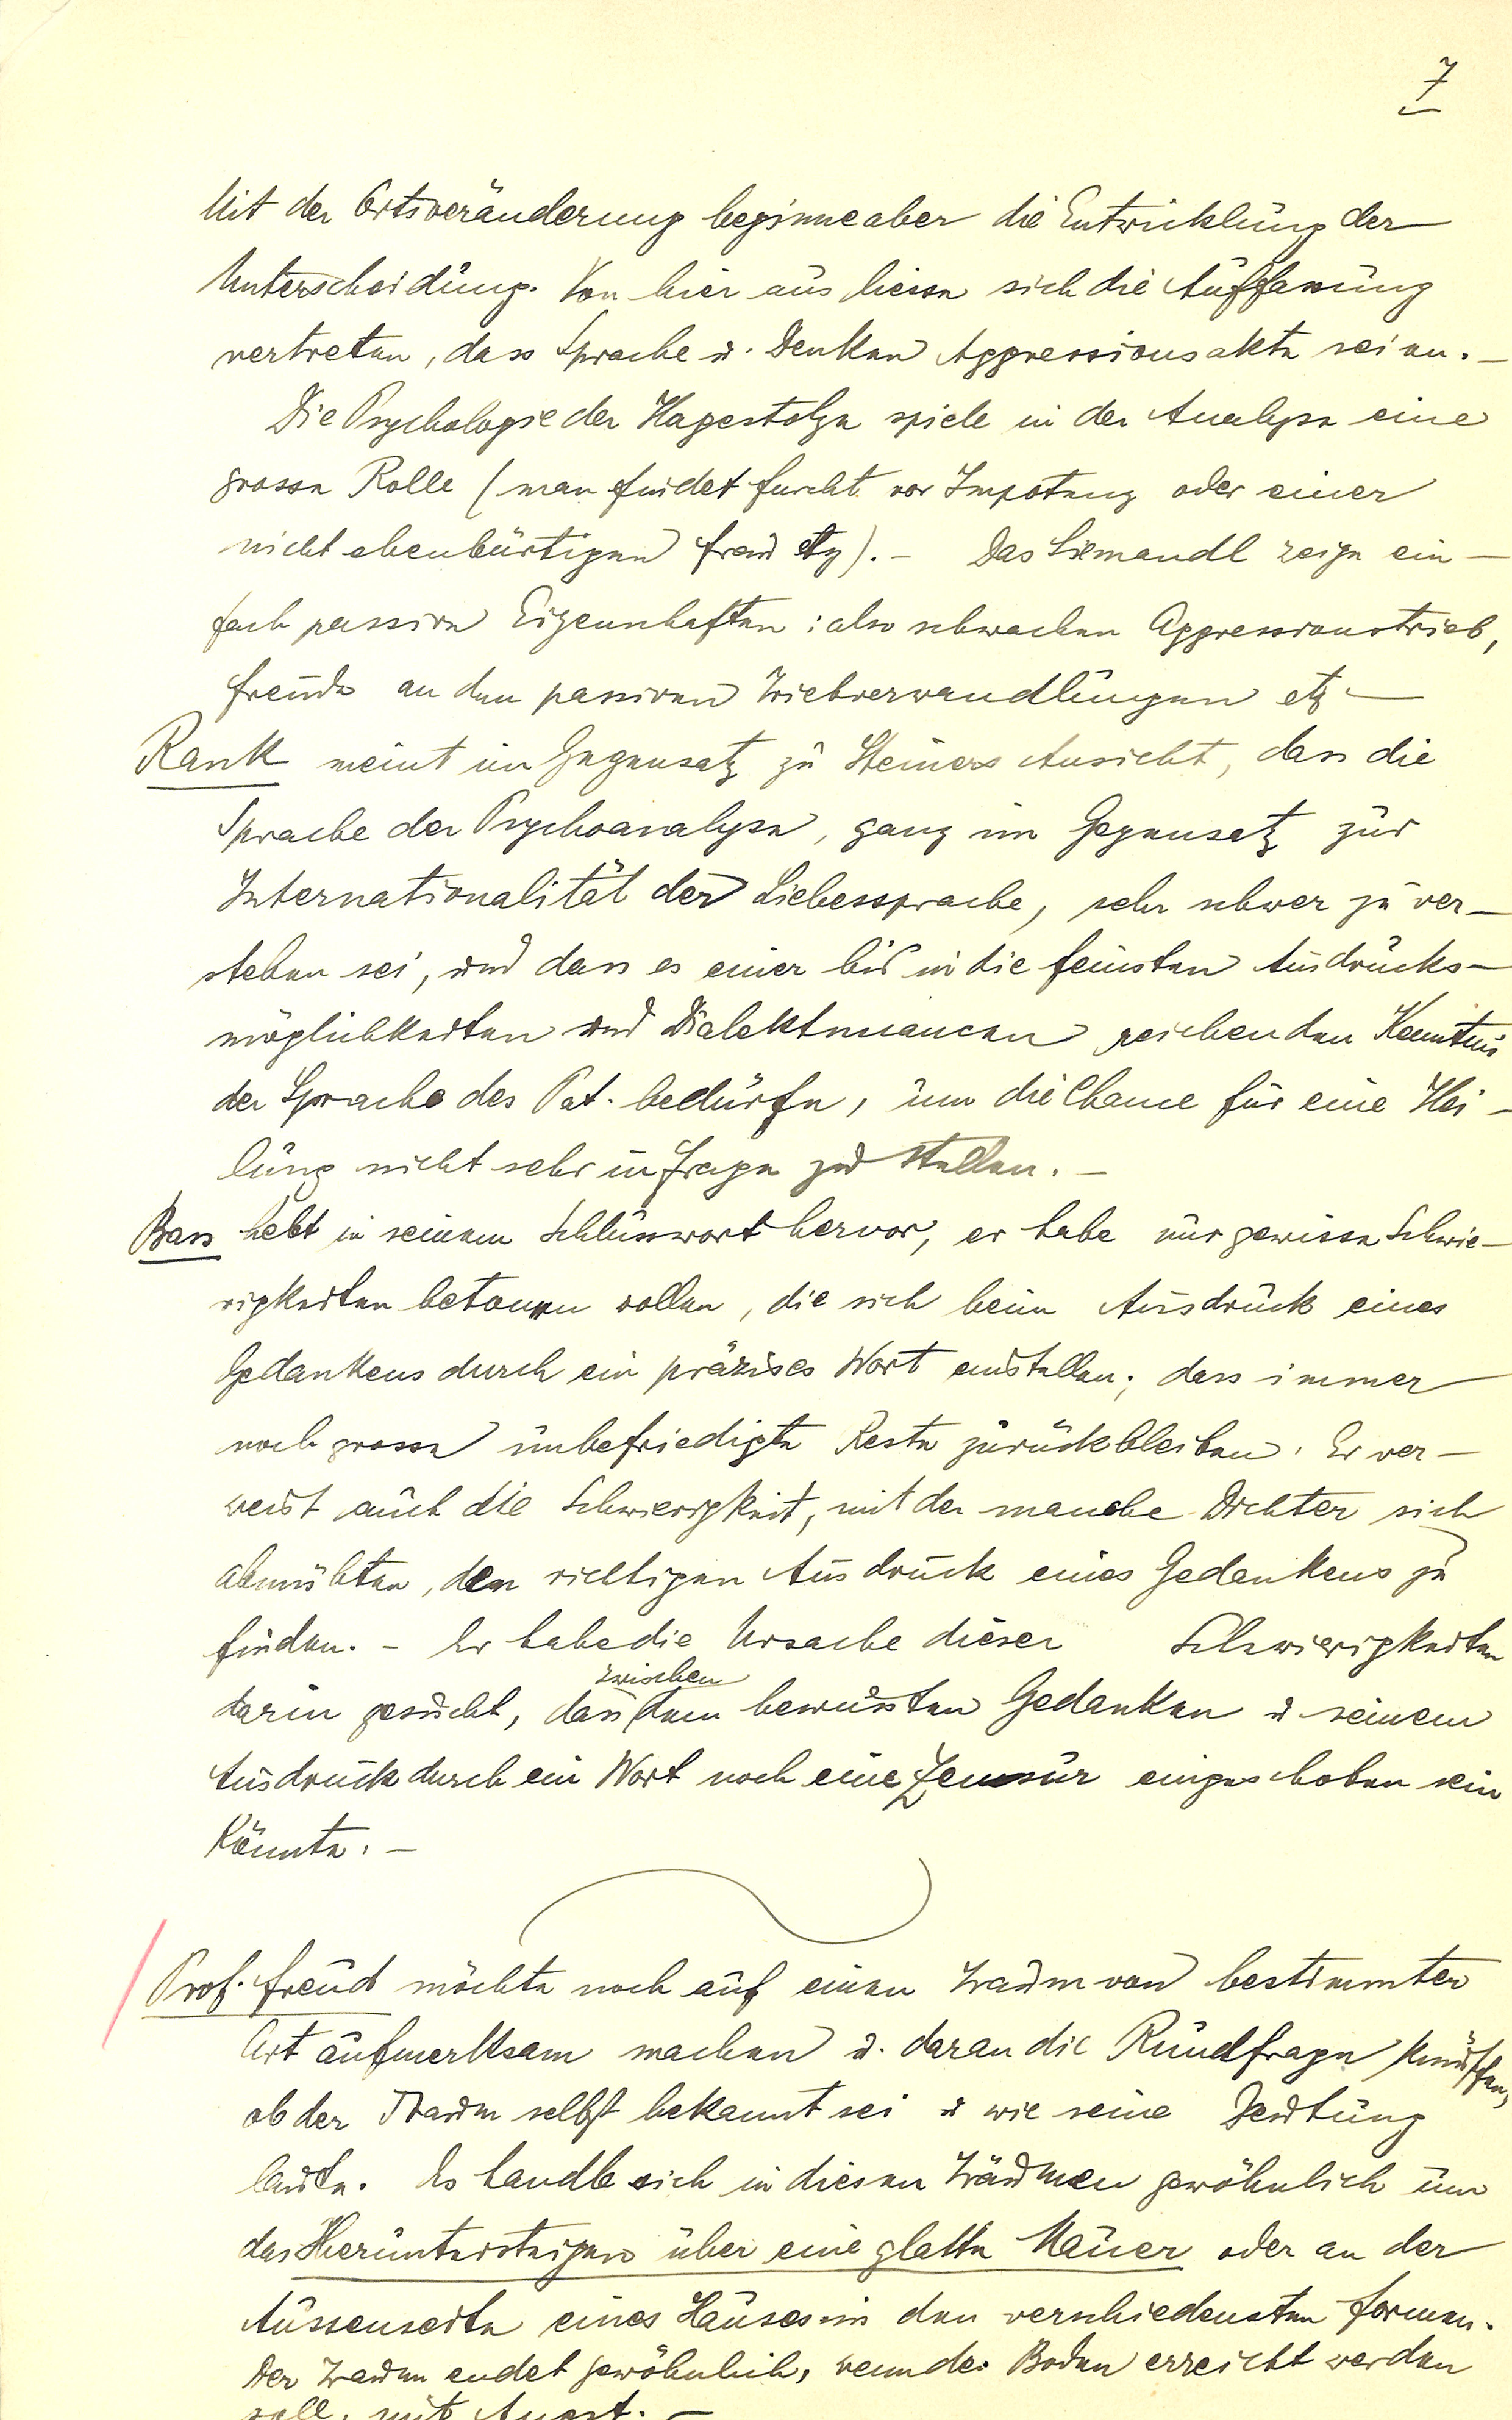 7
Mit der Ortsveränderung beginne aber die Entwicklung der
Unterscheidung. Von hier aus liesse sich die Auffassung
vertreten, dass Sprache u. Denken Aggressionsakte seien. –
Die Psychologie der Hagestolze spiele in der Analyse eine
grosse Rolle (man findet Furcht vor Impotenz oder einer
nicht ebenbürtigen Frau etz). – Das Siemandl zeige ein-
fach passive Eigenschaften: also schwachen Aggressionstrieb,
Freude an den passiven Triebverwandlungen etz –
Rank meint im Gegensatz zu Steiners Ansicht, dass die
Sprache der Psychoanalyse, ganz im Gegensatz zur
Internationalität der Liebessprache, sehr schwer zu ver-
stehen sei, und dass es einer bis in die feinsten Ausdrucks-
möglichkeiten und Dialektnuancen reichenden Kenntnis
der Sprache des Pat. bedürfe, um die Chance für eine Hei-
lung nicht sehr in Frage zu stellen. –
Bass hebt in seinem Schlusswort hervor, er habe nur gewisse Schwie-
rigkeiten betonen wollen, die sich beim Ausdruck eines
Gedankens durch ein präzises Wort einstellen; dass immer
noch grosse unbefriedigte Reste zurückbleiben. Er ver-
weist auch die Schwierigkeit, mit der manche Dichter sich
abmühten, den richtigen Ausdruck eines Gedankens zu
finden. – Er habe die Ursache dieser Schwierigkeiten
zwischen
darin gesucht, dass dem bewussten Gedanken u seinem
Ausdruck durch ein Wort noch eine Zensur eingeschoben sein
könnte. –
Prof. Freud möchte noch auf einen Traum von bestimmter
Art aufmerksam machen u. daran die Rundfrage knüpfen,
ob der Traum selbst bekannt sei u wie seine Deutung
laute. Es handle sich in diesen Träumen gewöhnlich um
das Heruntersteigen über eine glatte Mauer oder an der
Aussenseite eines Hauses in den verschiedensten Formen.
Der Traum endet gewöhnlich, wenn der Boden erreicht werden
soll, mit Angst. –